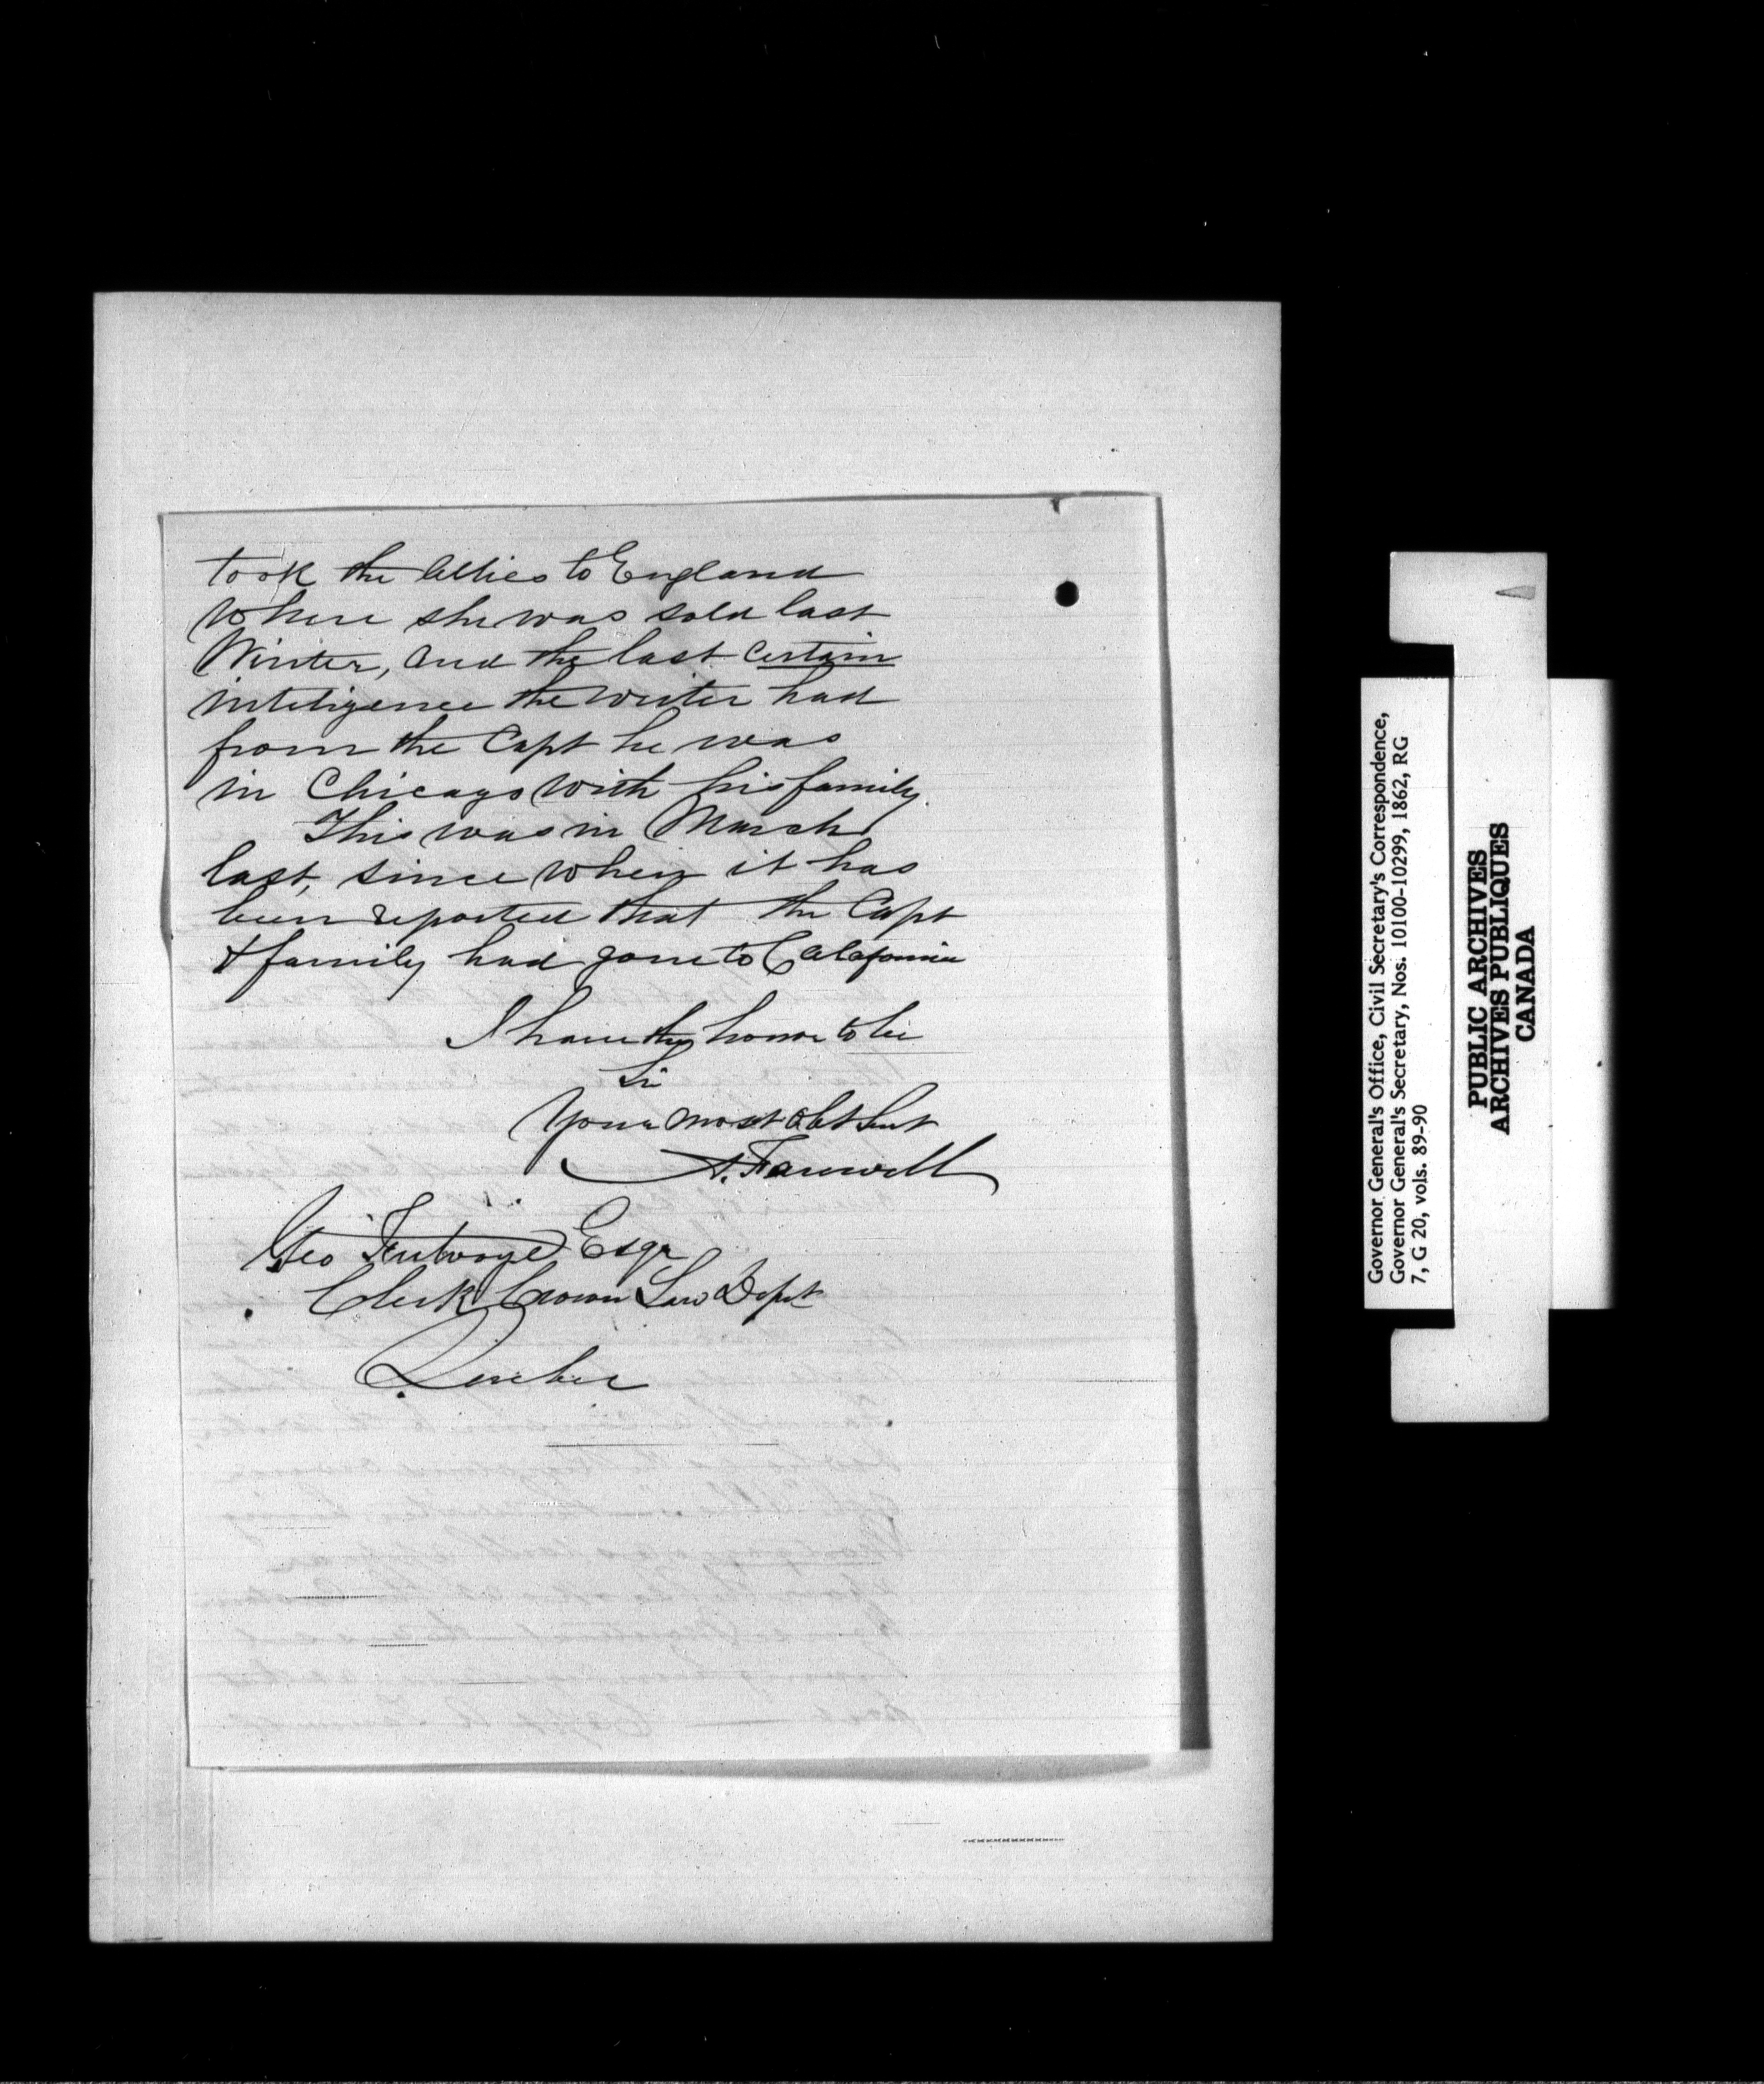 took the Allies to England
where she was sold last
Winter, and the last certain
inteligence the writer had
from the Capt he was
in Chicago with his family.
This was in March
last, since when it has
been reported that the Capt
& family had gone to Calafornia
I have the honor to be
Sir
Your most obt Sert
A. Farewell
Geo Futvoye Esqr
Clerk Crown Law Dept
Quebec
Governor General's Office, Civil Secretary's Correspondence,
Governor General's Secretary, Nos. 10100-10299, 1862, RG
7, G 20, vols. 89-90
PUBLIC ARCHIVES
ARCHIVES PUBLIQUES
CANADA